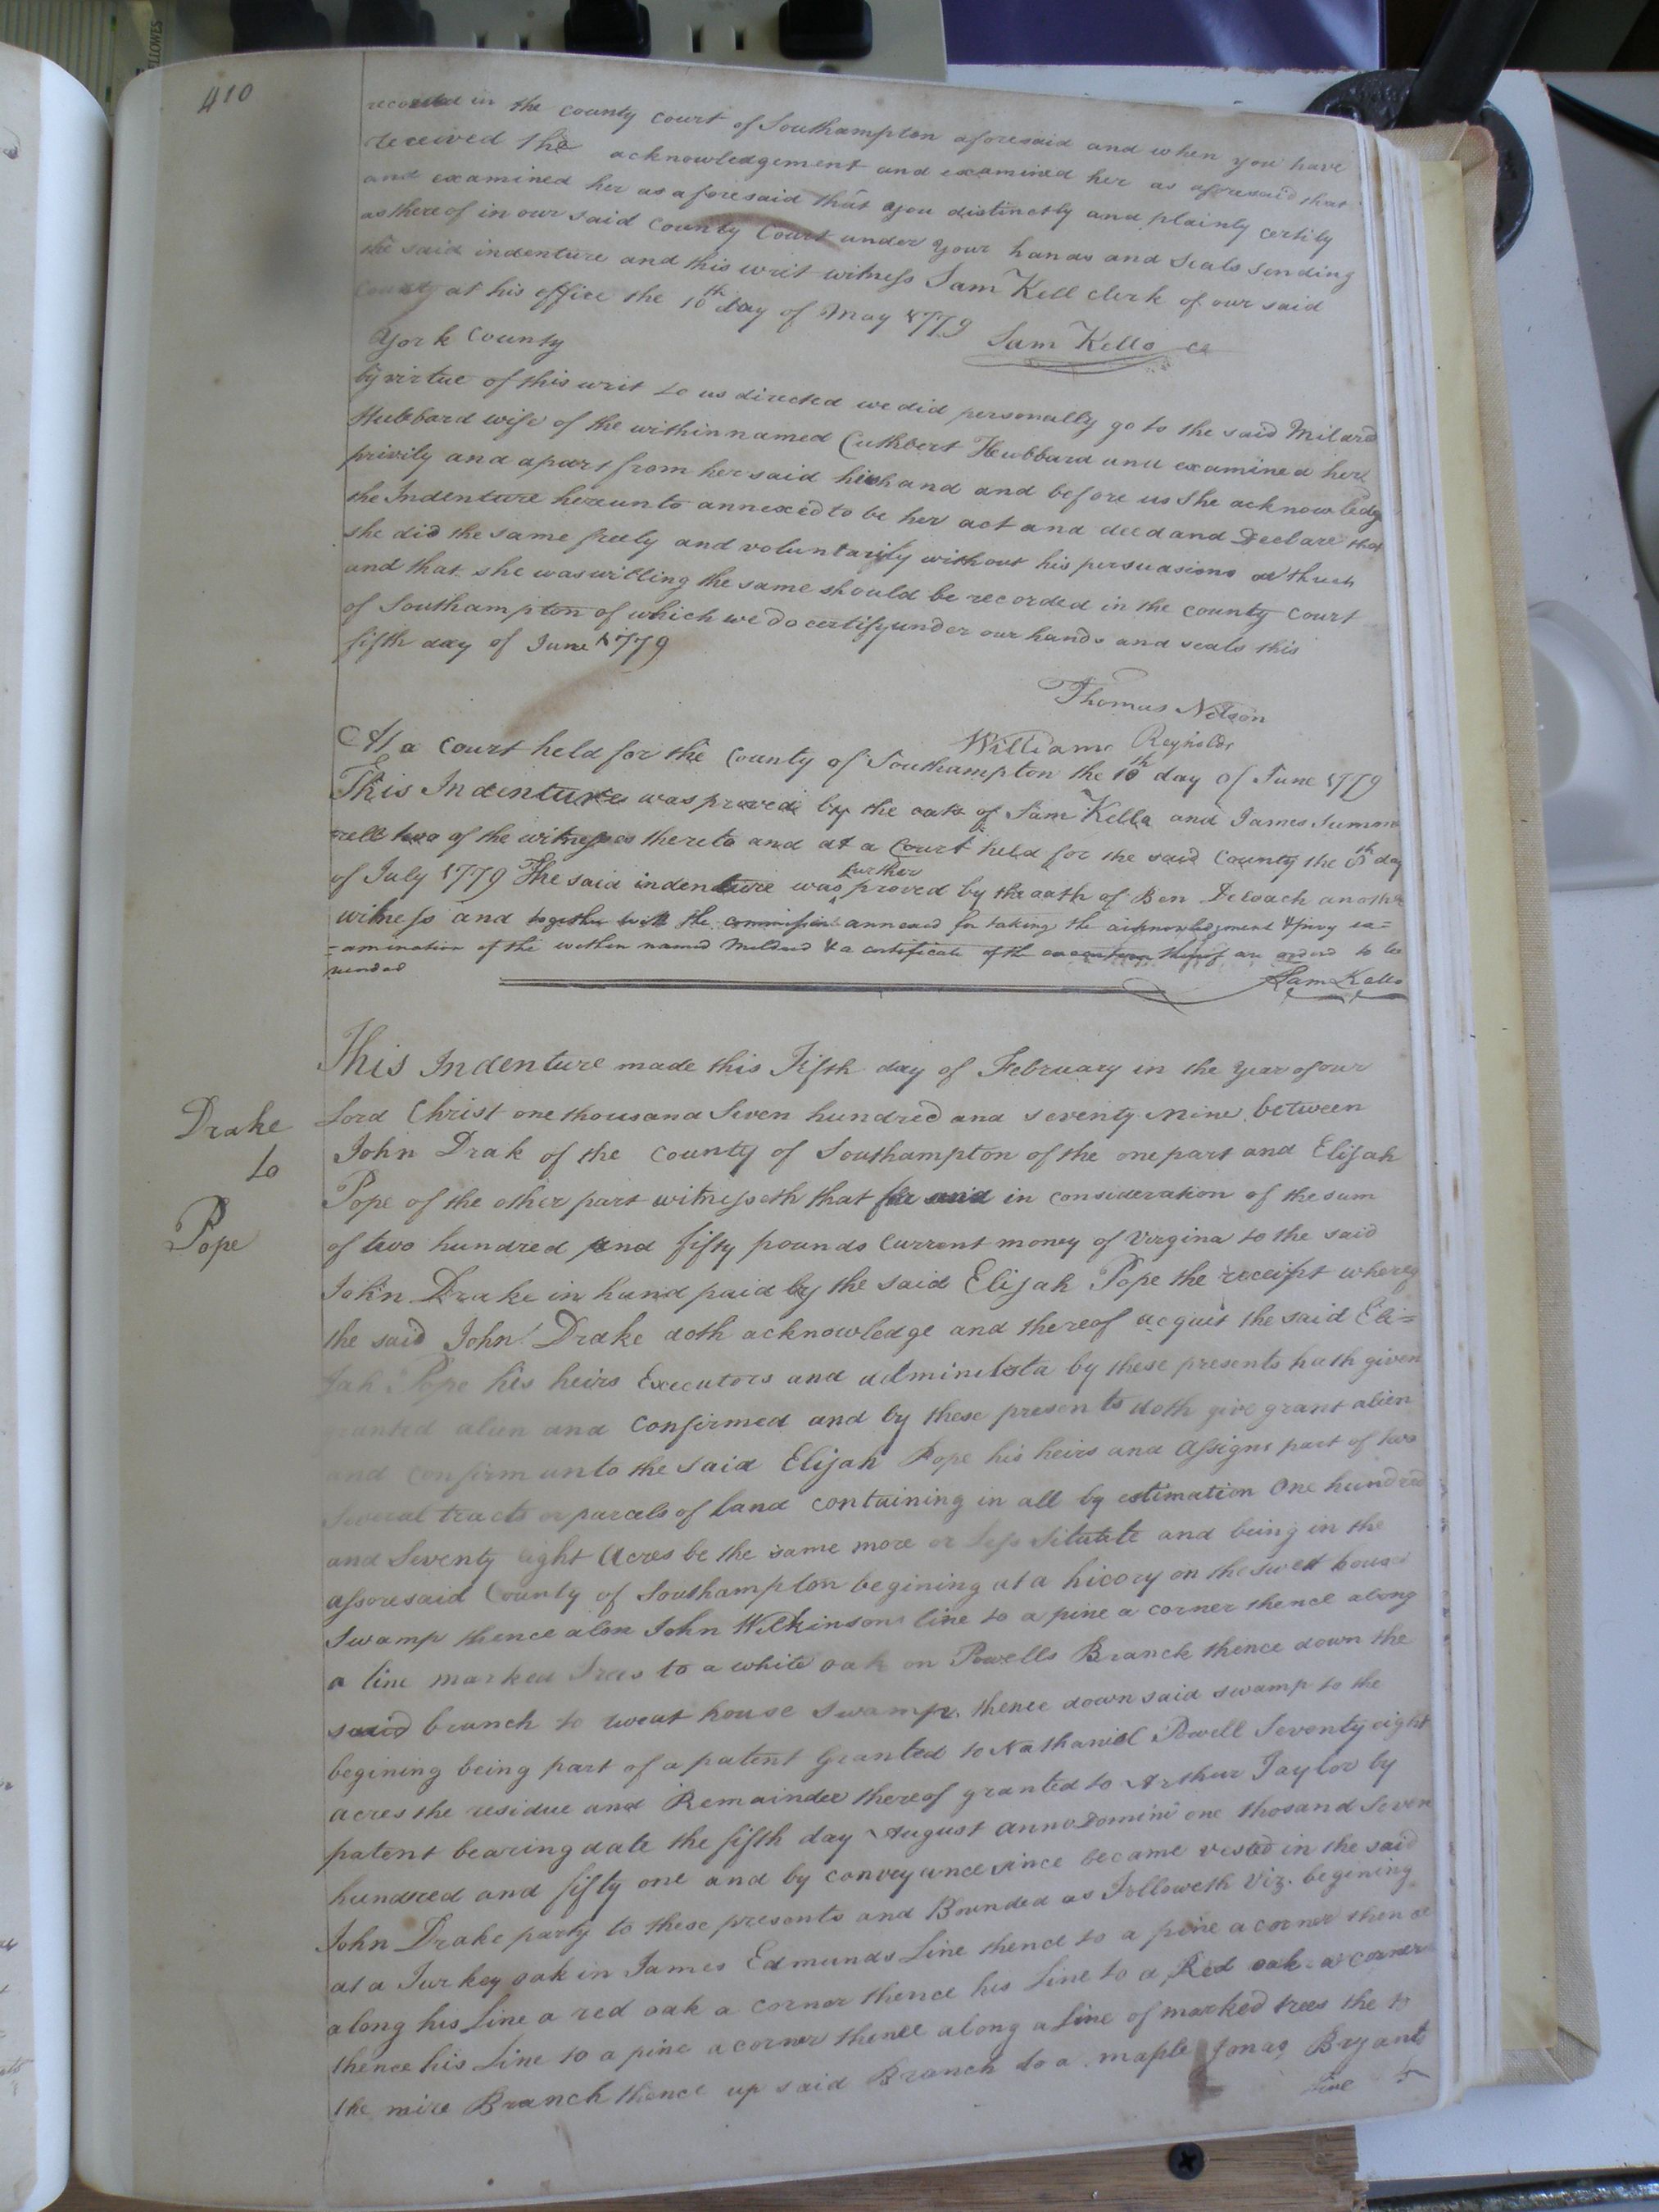 FELLOWES
410
recorded in the County Court of Southampton aforesaid and when you have
received the acknowledgement and examined her as aforesaid that
and examined her as aforesaid that you distinctly and plainly certify
as thereof in our said County Court under your hands and Seals sending
the said indenture and this writ witness Sam Kell clerk of our said
County at his office the 10th day of May 1779
Sam Kello CC
York County
by virtue of this writ to us directed we did personally go to the said Milard
Hubbard wife of the within named Cuthbert Hubbard and examined her
privily and apart from her said husband and before us She acknowledg
the Indenture hereunto annexed to be her act and deed and Declare that
she did the same freely and voluntarily without his persuasions or
and that she was willing the same should be recorded in the county Court
of Southampton of which we do certify under our hands and seals this
fifth day of June 1779
Thomas Nelson
William Reynolds
At a Court held for the County of Southampton the 10th day of June 1779
This Indenture was proved by the oath of Sam Kello and James Summe
rell two of the witnesses thereto and at a Court held for the said County the 8th day
of July 1779 The said indenture was further proved by the oath of Ben Deloach another
witness and together with the commission annexed for taking the acknowledgment & privy ex=
=amination of the within named Mildred & a certificate of the execution thereof are orderd to be
recorded
Sam Kello
This Indenture made this Fifth day of February in the Year of our
Drake
to
Pope
Lord Christ one thousand Seven hundred and seventy Nine between
John Drak of the County of Southampton of the one part and Elijah
Pope of the other part witnesseth that for and in consideration of the sum
of two hundred and fifty pounds Current money of Virgina to the said
John Drake in hand paid by the said Elijah Pope the receipt whereof
the said John Drake doth acknowledge and thereof acquit the said Eli=
jah Pope his heirs Executors and by these presents hath given
granted alien and Confirmed and by these presents doth give grant alien
and Confirm unto the said Elijah Pope his heirs and Assigns part of two
Several tracts or parcels of land containing in all by estimation One hundred
and Seventy eight Acres be the same more or Less Situtate and being in the
afsoresaid County of Southampton begining at a hicory on the swett house
Swamp thence alon John Wilkinsons line to a pine a corner thence along
a line marked Trees to a white oak on Powells Branch thence down the
said branch to sweat house swamp, thence down said swamp to the
begining being part of a patent Granted to Nathaniel Powell Seventy eight
acres the residue and Remainder thereof granted to Arthur Taylor by
patent bearing date the fifth day August anno Domini one thosand Seven
hundred and fifty one and by conveyance since became vested in the said
John Drake party to these presents and Bounded as Followeth Viz. begining
at a Turkey oak in James Edmunds Line thence to a pine a corner thence
along his Line a red oak a corner thence his Line to a Red oak a corner
thence his Line to a pine a corner thence along a Line of marked trees the to
the mire Branch thence up said Branch to a maple Jonas Bryants
line